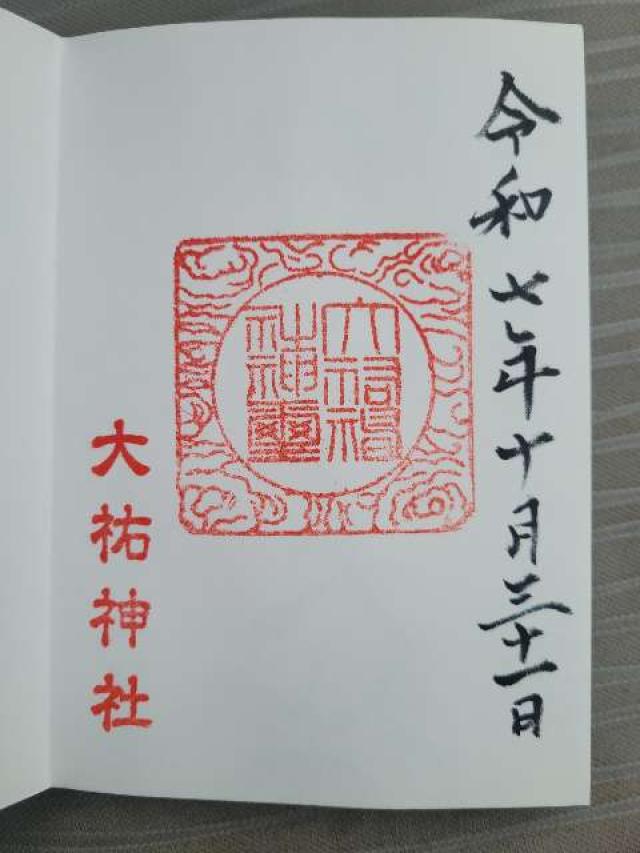 令和七年十月三十一日
大祐神
社神璽
大祐神社